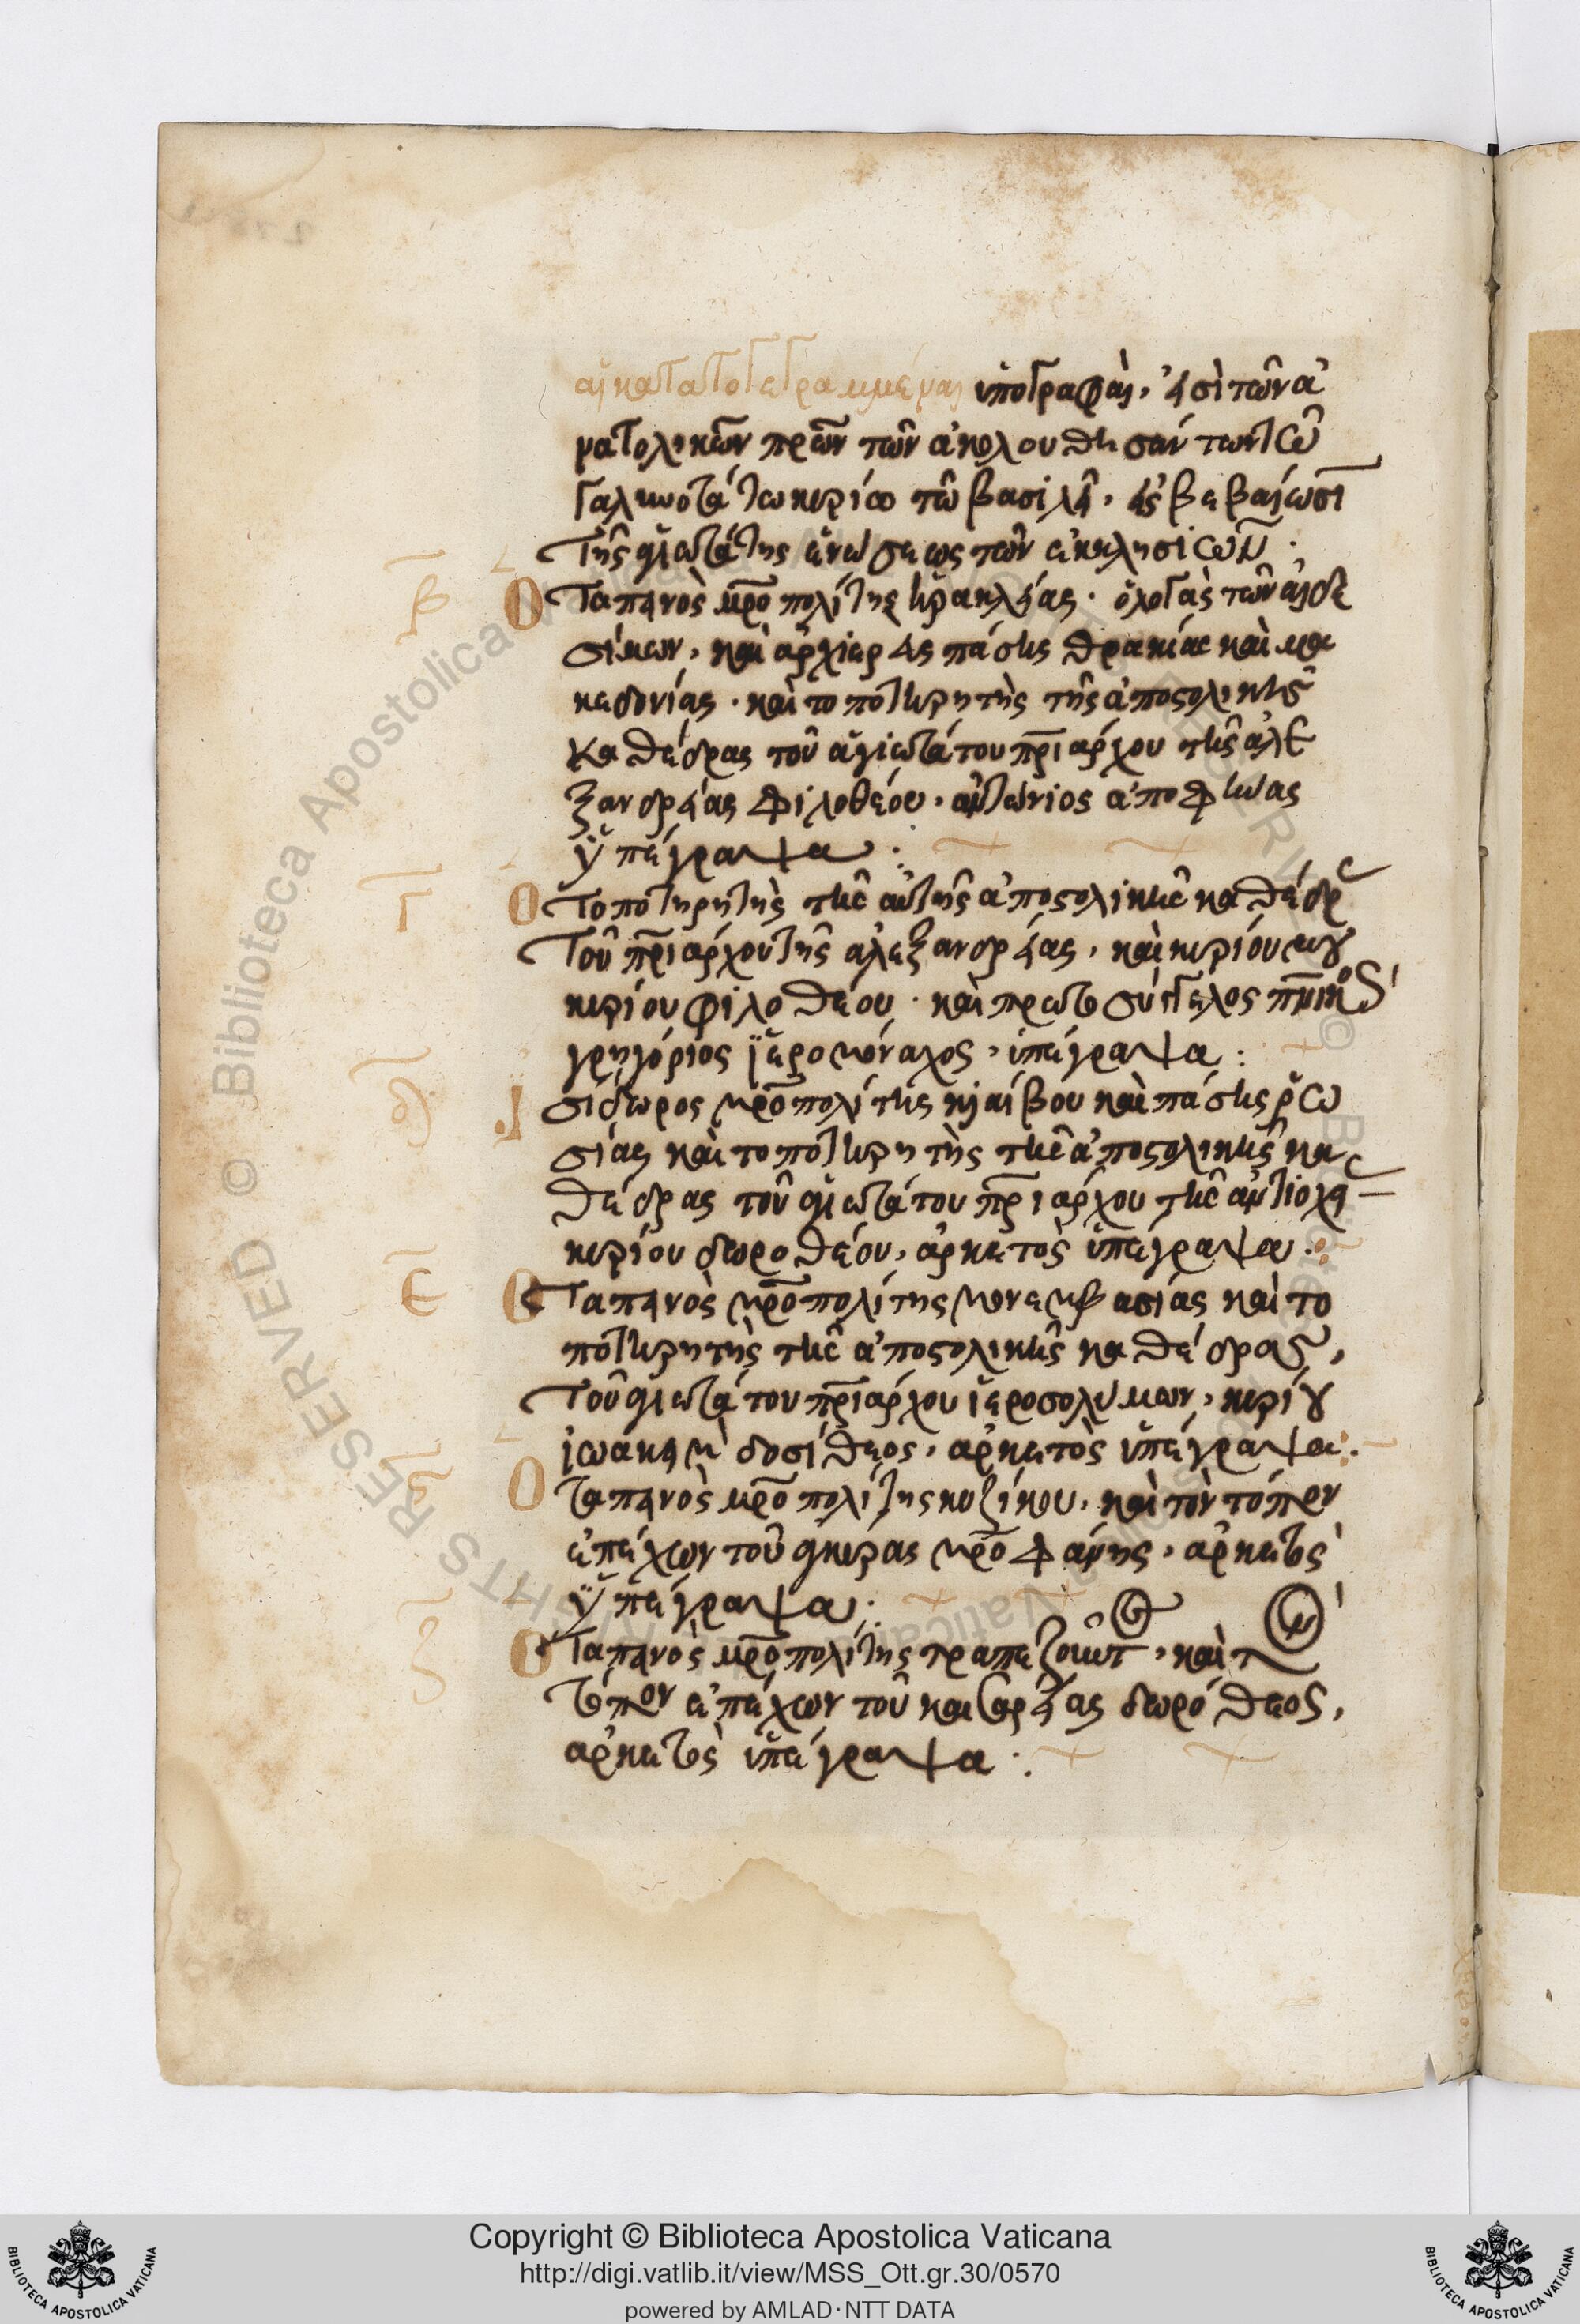 αἱ κατὰ τὸ γεγραμμέναι ὑπογραφαὶ, εἰσὶ τῶν ἀ
νατολικῶν πρων τῶν ἀκολουθησάντων τῶ
γαληνοτάτω κυρίω τῶ βασιλεῖ, εἰς βεβαίωσι
τῆς ἁγιωτάτης ἑνώσεως τῶν ἐκκλησιῶν .
β Ὁ Ταπεινὸς μροπολίτης ἡρακλείας · ὁ λογὰς τῶν αἰδε
σίμων, καὶ ἀρχιερεὺς πάσης θρακίας καὶ μα
κεδονίας · καὶ τοποτηρητὴς τῆς ἀποστολικῆς
καθέδρας τοῦ ἁγιωτάτου πριάρχου τῆς ἀλε
ξανδρείας φιλοθέου, ἀντώνιος ἀποφήνας
ὑπέγραψα :
γ Ὁ Τοποτηρητὴς τῆς αὐτῆς ἀποστολικῆς καθέδρ
τοῦ πριάρχου τῆς ἀλεξανδρείας, καὶ κυρίου μου
κυρίου φιλοθέου · καὶ πρωτοσύγγελος πνικὸς
γρηγόριος ἱερομόναχος, ὑπέγραψα :
δ Ἰσίδωρος μροπολίτης κιαίβου καὶ πάσης ῥω
σίας καὶ τοποτηρητὴς τῆς ἀποστολικῆς κα
θέδρας τοῦ ἁγιωτάτου πριάρχου τῆς ἀντιοχεί
κυρίου δωροθέου, ἀρκετὸς ὑπέγραψα :
ε Ὁ Ταπεινὸς μροπολίτης μονεμβασίας καὶ το
ποτηρητὴς τῆς ἀποστολικῆς καθέδρας,
τοῦ ἁγιωτάτου πριάρχου ἱεροσολύμων, κυρίου
ἰωακεὶμ δοσίθεος, ἀρκετὸς ὑπέγραψα :
ϛ Ὁ Ταπεινὸς μροπολίτης κυζίκου, καὶ τὸν τόπον
ἐπέχων τοῦ ἀγκύρας μροφάνης, ἀρκετὸς
ὑπέγραψα :
ζ Ὁ Ταπεινὸς μροπολίτης τραπεζοῦντος, καὶ τὸν
τόπον ἐπέχων τοῦ καισαρείας δωρόθεος,
ἀρκετὸς ὑπέγραψα :
Copyright © Biblioteca Apostolica Vaticana
http://digi.vatlib.it/view/MSS_Ott.gr.30/0570
powered by AMLAD·NTT DATA